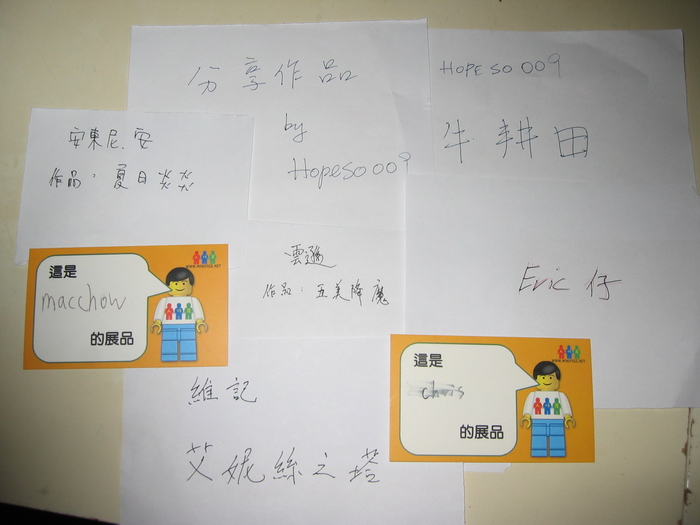 分享作品
by
Hopeso 009
HOPE SO 009
牛耕田
安東尼.安
作品：夏日炎炎
雲遜
作品：五美降魔
Eric 仔
這是
macchow
的展品
這是
chris
的展品
維記
艾妮絲之塔